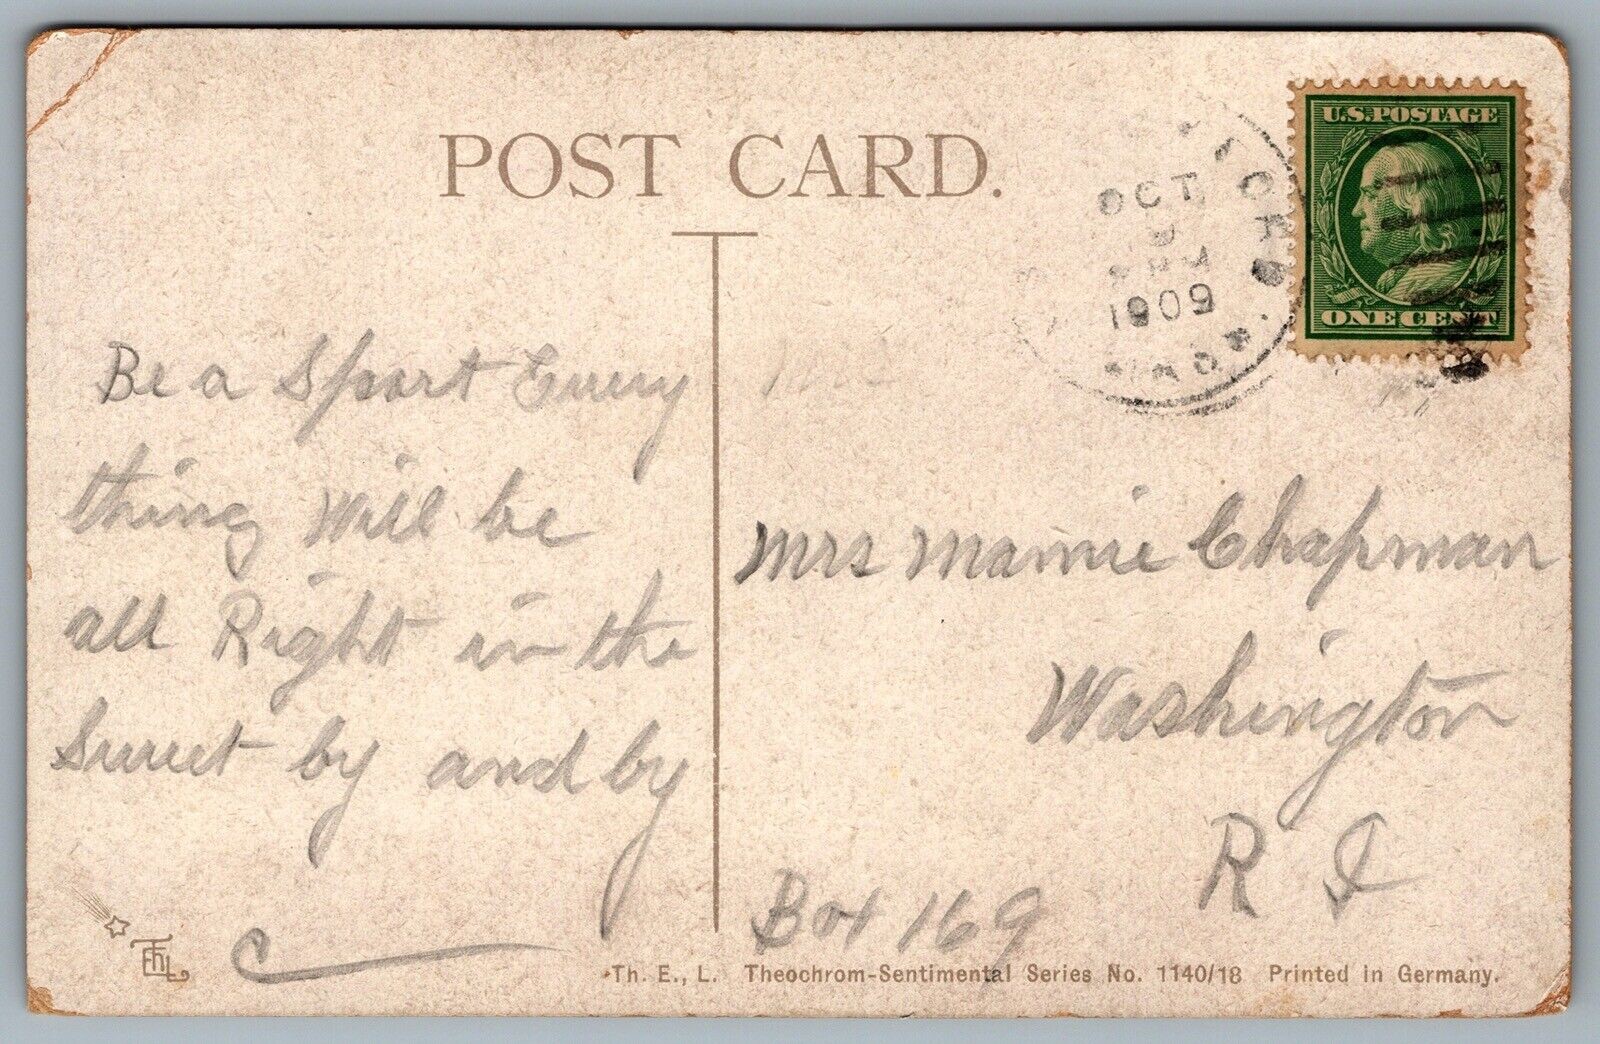 POST CARD.
U.S. POSTAGE
ONE CENT
OCT
1909
Be a Sport Every
thing will be
all Right in the
Sweet by and by
C
Mrs Mamie Chapman
Washington
R I
Box 169
Th. E., L. Theochrom-Sentimental Series No. 1140/18 Printed in Germany.